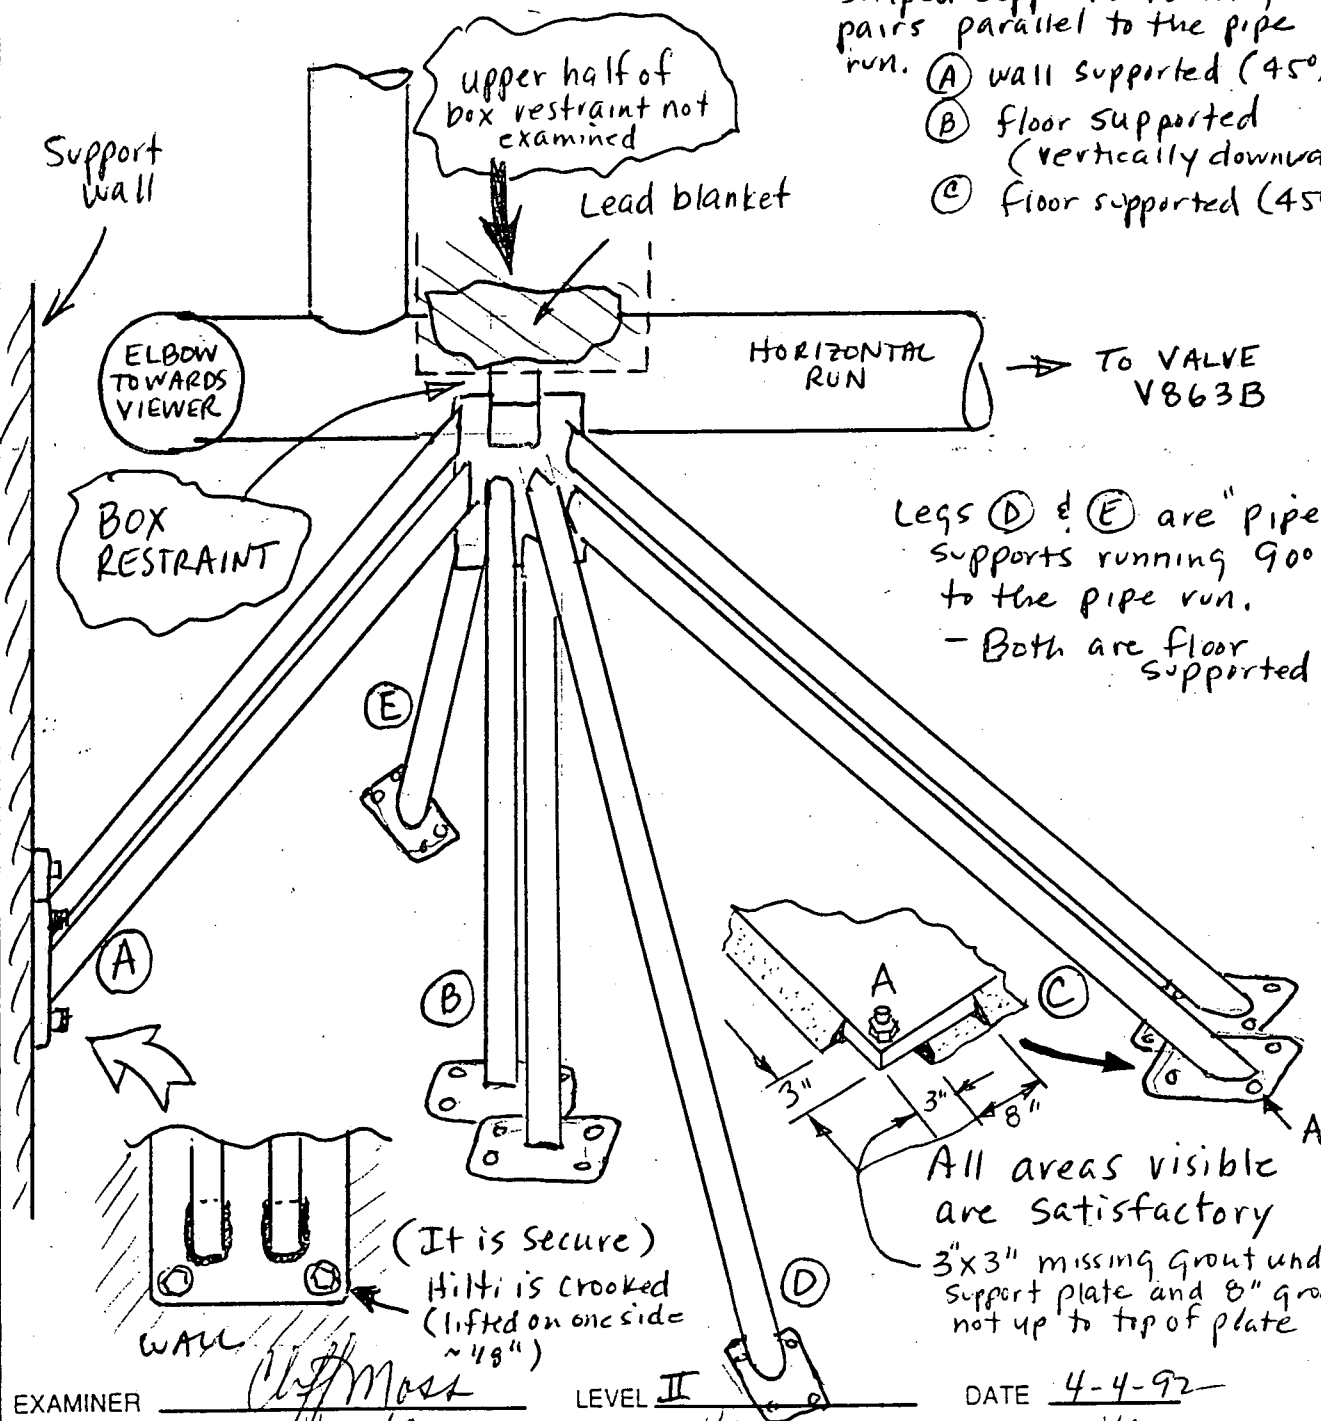 pairs parallel to the pipe
run.
Ⓐ wall supported (45°
Ⓑ floor supported
(vertically downwa
Ⓒ floor supported (45°
upper half of
box restraint not
examined
Support
wall
Lead blanket
ELBOW
TOWARDS
VIEWER
HORIZONTAL
RUN
TO VALVE
V863B
BOX
RESTRAINT
Legs Ⓓ & Ⓔ are "pipe
supports running 90°
to the pipe run.
- Both are floor
supported
Ⓔ
Ⓐ
Ⓑ
A
Ⓒ
3"
3"
8"
A
All areas visible
are satisfactory
3"x3" missing grout und
support plate and 8" gro
not up to top of plate
(It is secure)
Hilti is crooked
(lifted on one side
~ 1/8")
WALL
Ⓓ
EXAMINER Cliff Moss LEVEL II DATE 4-4-92